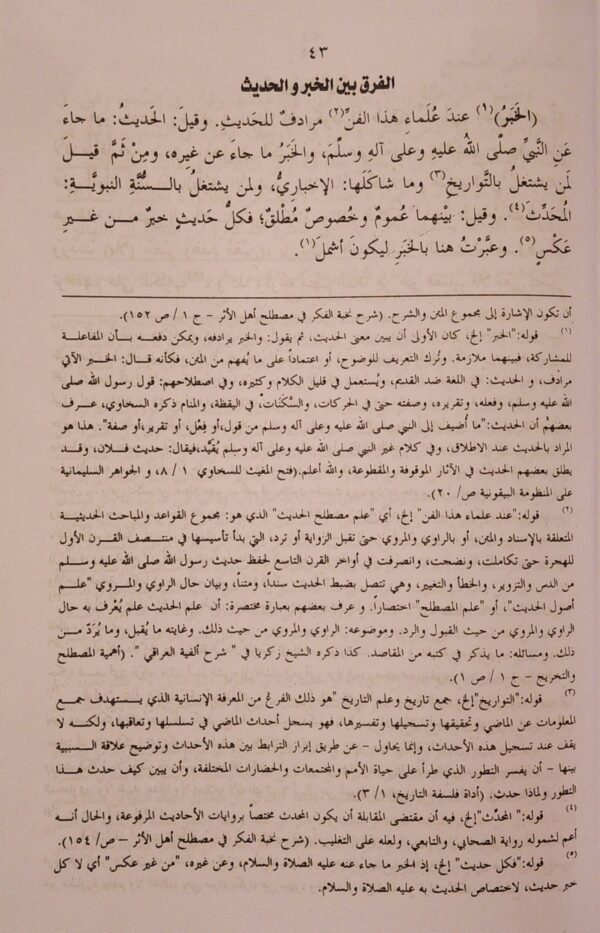 ٤٣
الفرق بين الخبر والحديث
(الخَبَرُ)(١) عندَ عُلَماءِ هذا الفنِّ(٢) مرادفٌ للحَديثِ. وقيلَ: الحَديثُ: ما جاءَ
عَنِ النَّبيِّ صلَّى اللهُ عليهِ وعلى آلهِ وسلَّمَ، والخَبَرُ ما جاءَ عن غيره، ومِنْ ثَمَّ قيلَ
لمَن يشتغلُ بالتَّواريخِ(٣) وما شاكَلَها: الإخباريُّ، ولمن يشتغلُ بالسُّنَّةِ النبويَّةِ:
المُحَدِّثَ(٤). وقيل: بيْنهما عُمومٌ وخُصوصٌ مُطْلقٌ؛ فكلُّ حَديثٍ خبرٌ من غيرِ
عَكْسٍ(٥). وعبَّرْتُ هنا بالخَبَرِ ليكونَ أشملَ(١).
أن تكون الإشارة إلى مجموع المتن والشرح. (شرح نخبة الفكر في مصطلح أهل الأثر – ج ١ / ص ١٥٢).
(١) قوله:"الخبر" إلخ، كان الأولى أن يبين معنى الحديث، ثم يقول: والخبر يرادفه، ويمكن دفعه بأن المفاعلة
للمشاركة، فبينهما ملازمة. وتُرك التعريف للوضوح، أو اعتماداً على ما يُفهم من المتن، فكأنه قال: الخبر الآتي
مرادف، و الحديث: في اللغة ضد القديم، ويُستعمل في قليل الكلام وكثيره، وفي اصطلاحهم: قول رسول الله صلى
الله عليه وسلم، وفعله، وتقريره، وصفته حتى في الحركات، والسَّكَنات، في اليقظة، والمنام ذكره السخاوي، عرف
بعضهمْ أن الحديث:"ما أُضيف إلى النبي صلى الله عليه وعلى آله وسلم من قول،أو فِعْل، أو تقرير،أو صفة". هذا هو
المراد بالحديث عند الاطلاق، وفي كلام غير النبي صلى الله عليه وعلى آله وسلم يُقَيَّد،فيقال: حديث فلان، وقد
يطلق بعضهم الحديث في الآثار الموقوفة والمقطوعة، والله أعلم.(فتح المغيث للسخاوي ١ / ٨، و الجواهر السليمانية
على المنظومة البيقونية ص/ ٢٠).
(٢) قوله:"عند علماء هذا الفن" إلخ، أي "علم مصطلح الحديث" الذي هو: مجموع القواعد والمباحث الحديثية
المتعلقة بالإسناد والمتن، أو بالراوي والمروي حتى تقبل الرواية أو ترد، التي بدأ تأسيسها في منتصف القرن الأول
للهجرة حتى تكاملت، ونضجت، وانصرفت في أواخر القرن التاسع لحفظ حديث رسول الله صلى الله عليه وسلم
من الدس والتزوير، والخطأ والتغيير، وهي تتصل بضبط الحديث سنداً، ومتناً، وبيان حال الراوي والمروي "علم
أصول الحديث"، أو "علم المصطلح" اختصاراً. و عرف بعضهم بعبارة مختصرة: أن علم الحديث علم يُعْرف به حال
الراوي والمروي من حيث القبول والرد. وموضوعه: الراوي والمروي من حيث ذلك. وغايته ما يُقبل، وما يُرَدّ من
ذلك. ومسائله: ما يذكر في كتبه من المقاصد. كذا ذكره الشيخ زكريا في " شرح ألفية العراقي ". (أهمية المصطلح
والتخريج – ج ١ / ص ١).
(٣) قوله:"التواريخ"إلخ، جمع تاريخ وعلم التاريخ "هو ذلك الفرع من المعرفة الإنسانية الذي يستهدف جمع
المعلومات عن الماضي وتحقيقها وتسجيلها وتفسيرها، فهو يسجل أحداث الماضي في تسلسلها وتعاقبها، ولكنه لا
يقف عند تسجيل هذه الأحداث، وإنما يحاول – عن طريق إبراز الترابط بين هذه الأحداث وتوضيح علاقة السببية
بينها – أن يفسر التطور الذي طرأ على حياة الأمم والمجتمعات والحضارات المختلفة، وأن يبين كيف حدث هذا
التطور ولماذا حدث. (أداة فلسفة التاريخ، ١ / ٣).
(٤) قوله:" المحدِّث"إلخ، فيه أن مقتضى المقابلة أن يكون المحدث مختصاً بروايات الأحاديث المرفوعة، والحال أنه
أعم لشموله رواية الصحابي، والتابعي، ولعله على التغليب. (شرح نخبة الفكر في مصطلح أهل الأثر – ص/ ١٥٤).
(٥) قوله:"فكل حديث" إلخ، إذ الخبر ما جاء عنه عليه الصلاة والسلام، وعن غيره، "من غير عكس" أي لا كل
خبر حديث، لاختصاص الحديث به عليه الصلاة والسلام.